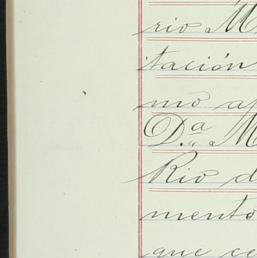 rio M
itación
mo ap
D.ª M
Rio d
mento
que ce